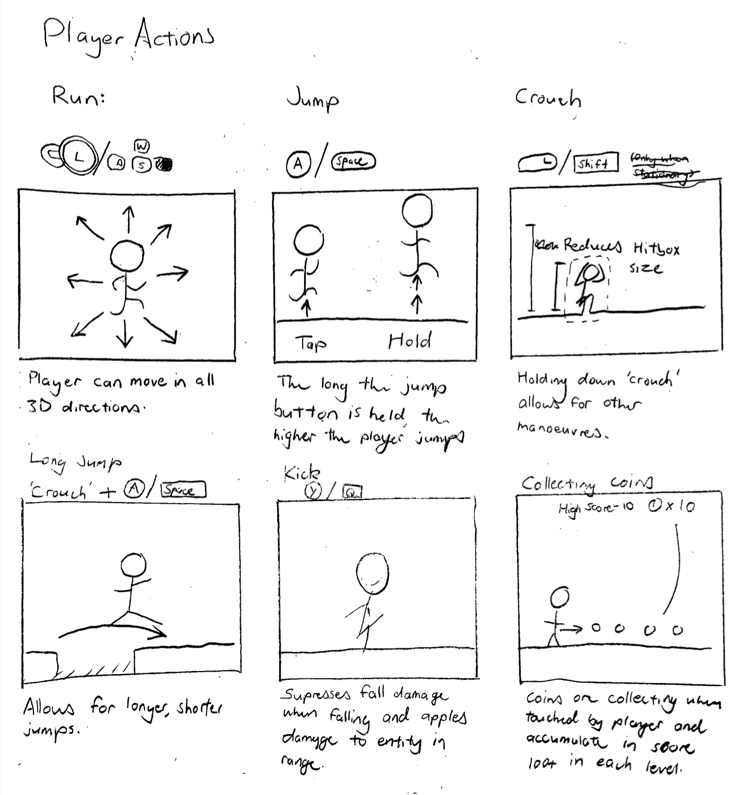 Player Actions
Run:
L / A W S
Player can move in all
3D directions.
Jump
A / Space
Tap Hold
The long the jump
button is held, the
higher the player jumps
Crouch
L / Shift
Reduces Hitbox
size
Holding down 'crouch'
allows for other
manoeuvres.
Long Jump
'Crouch' + A / Space
Allows for longer, shorter
jumps.
Kick
Y / Q
Supresses fall damage
when falling and apples
damage to entity in
range.
Collecting coins
High Score-10 1 x 10
Coins are collecting when
touched by player and
accumulate in score
in each level.